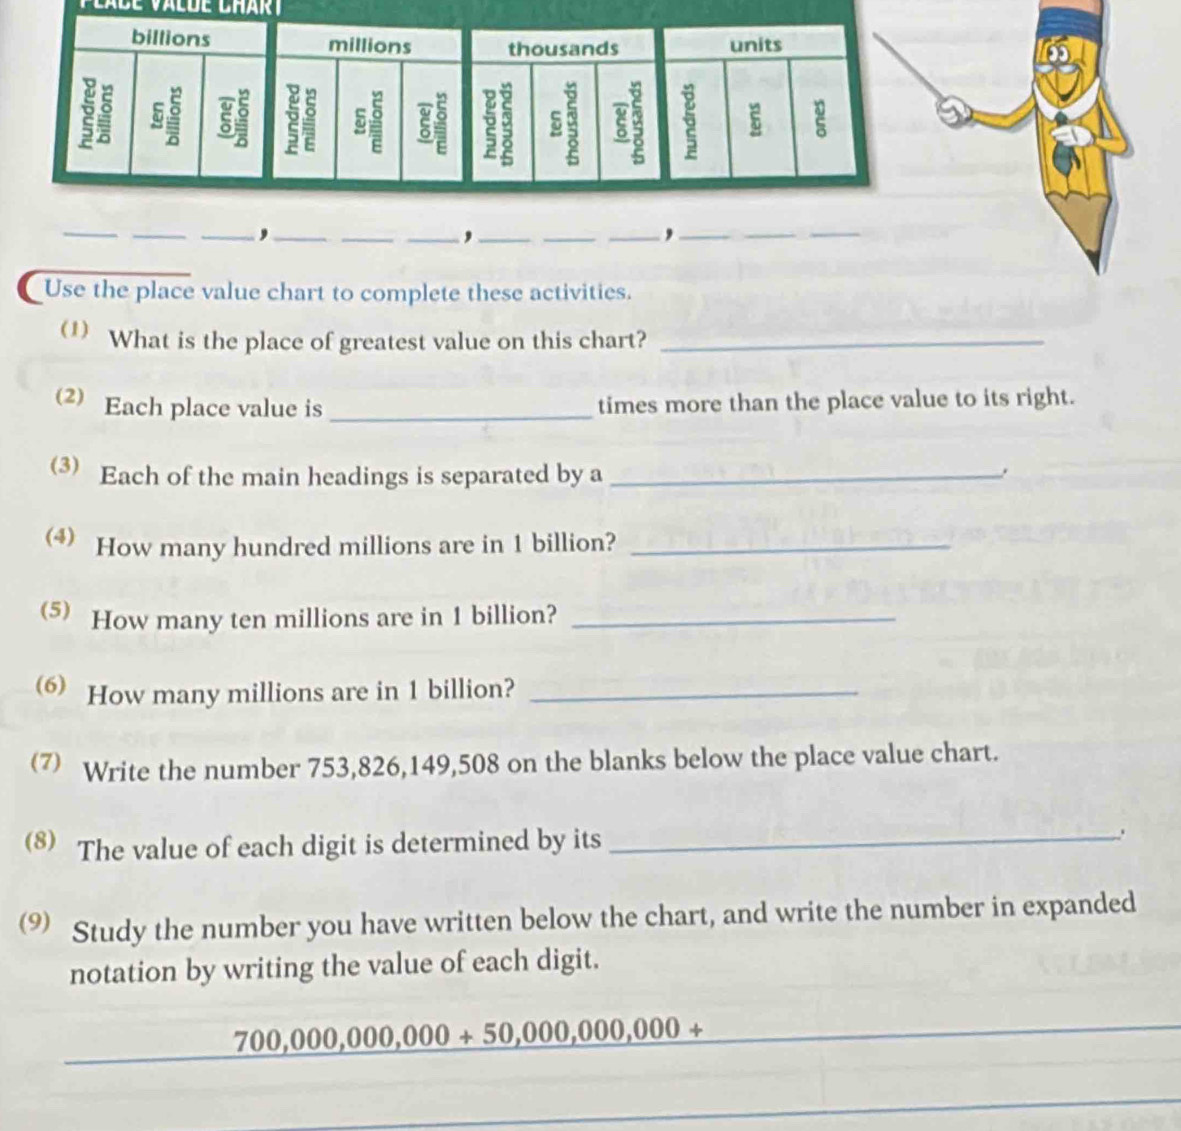 PLACE VALUE CHART
billions millions thousands units
hundred billions ten billions (one) billions hundred millions ten millions (one) millions hundred thousands ten thousands (one) thousands hundreds tens ones
____ ____ ____,____ ____ ____,____ ____ ____,____ ____ ____
Use the place value chart to complete these activities.
(1) What is the place of greatest value on this chart? ____
(2) Each place value is ____ times more than the place value to its right.
(3) Each of the main headings is separated by a ____.
(4) How many hundred millions are in 1 billion? ____
(5) How many ten millions are in 1 billion? ____
(6) How many millions are in 1 billion? ____
(7) Write the number 753,826,149,508 on the blanks below the place value chart.
(8) The value of each digit is determined by its ____.
(9) Study the number you have written below the chart, and write the number in expanded
notation by writing the value of each digit.
700,000,000,000 + 50,000,000,000 +